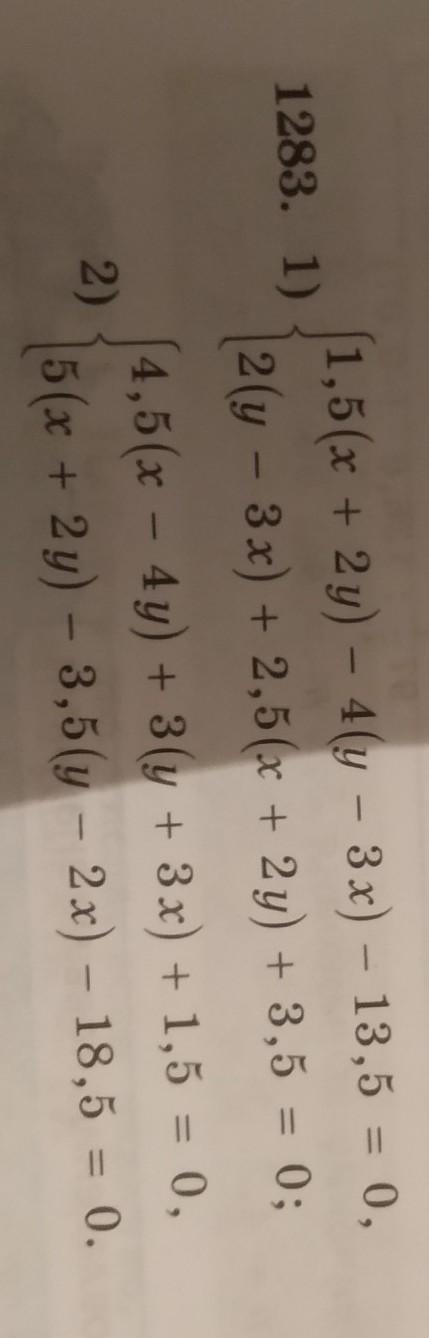 1283. 1) {1,5(x + 2y) − 4(y − 3x) − 13,5 = 0,
2(y − 3x) + 2,5(x + 2y) + 3,5 = 0;
2) {4,5(x − 4y) + 3(y + 3x) + 1,5 = 0,
5(x + 2y) − 3,5(y − 2x) − 18,5 = 0.